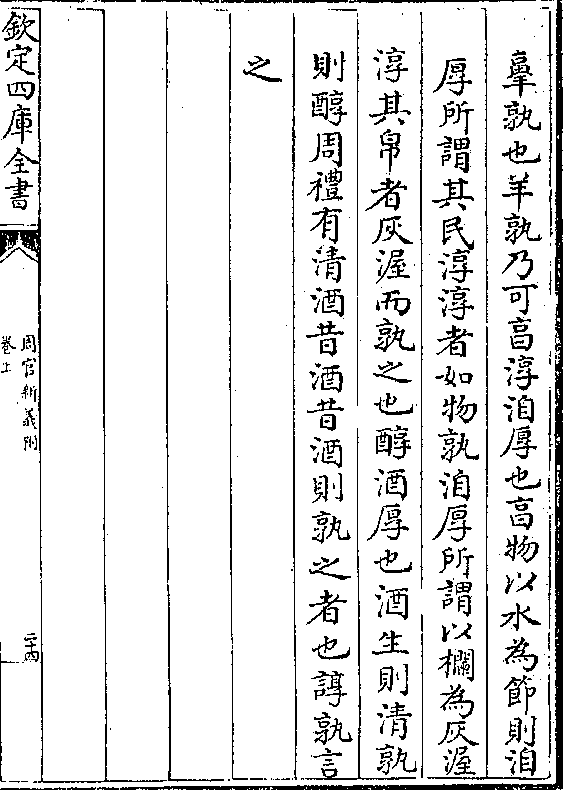 𦎫孰也羊孰乃可亯淳洎厚也亯物以水為節則洎
厚所謂其民淳淳者如物孰洎厚所謂以欄為灰渥
淳其帛者灰渥而孰之也醇酒厚也酒生則清孰
則醇周禮有清酒昔酒昔酒則孰之者也諄孰言
之
欽定四庫全書
周官新義附
卷上
二十四